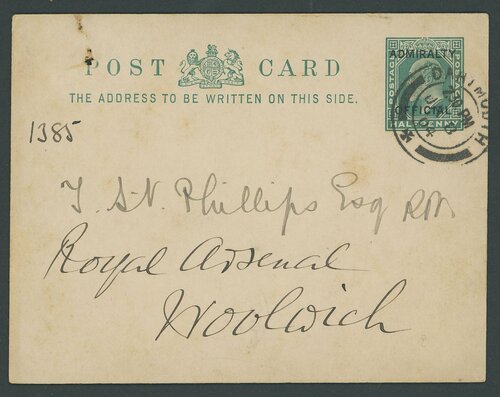 POST CARD
THE ADDRESS TO BE WRITTEN ON THIS SIDE.
ADMIRALTY
OFFICIAL
POSTAGE
POSTAGE
HALFPENNY
DARTMOUTH
1385
Phillips Esq
Royal Arsenal
Woolwich